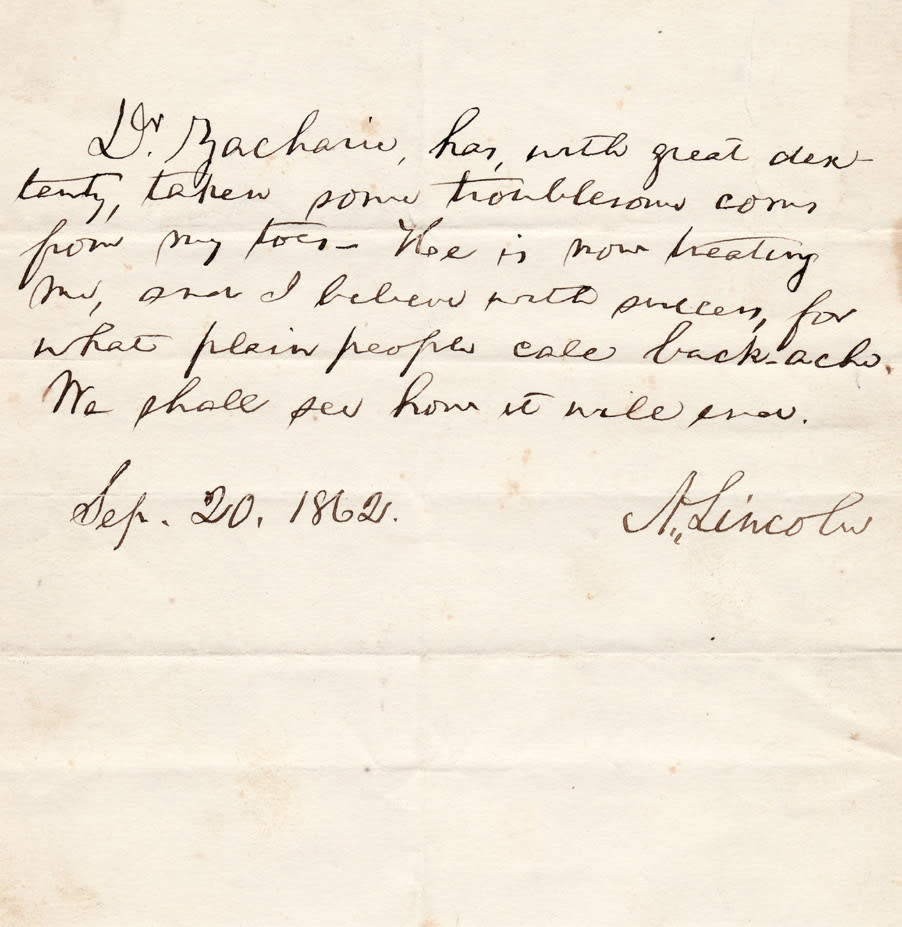 Dr. Zacharie, has, with great dex-
terity, taken some troublesome corns
from my toes— He is now treating
me, and I believe with success, for
what plain people call back-ache.
We shall see how it will end.
Sep. 20. 1862.
A. Lincoln